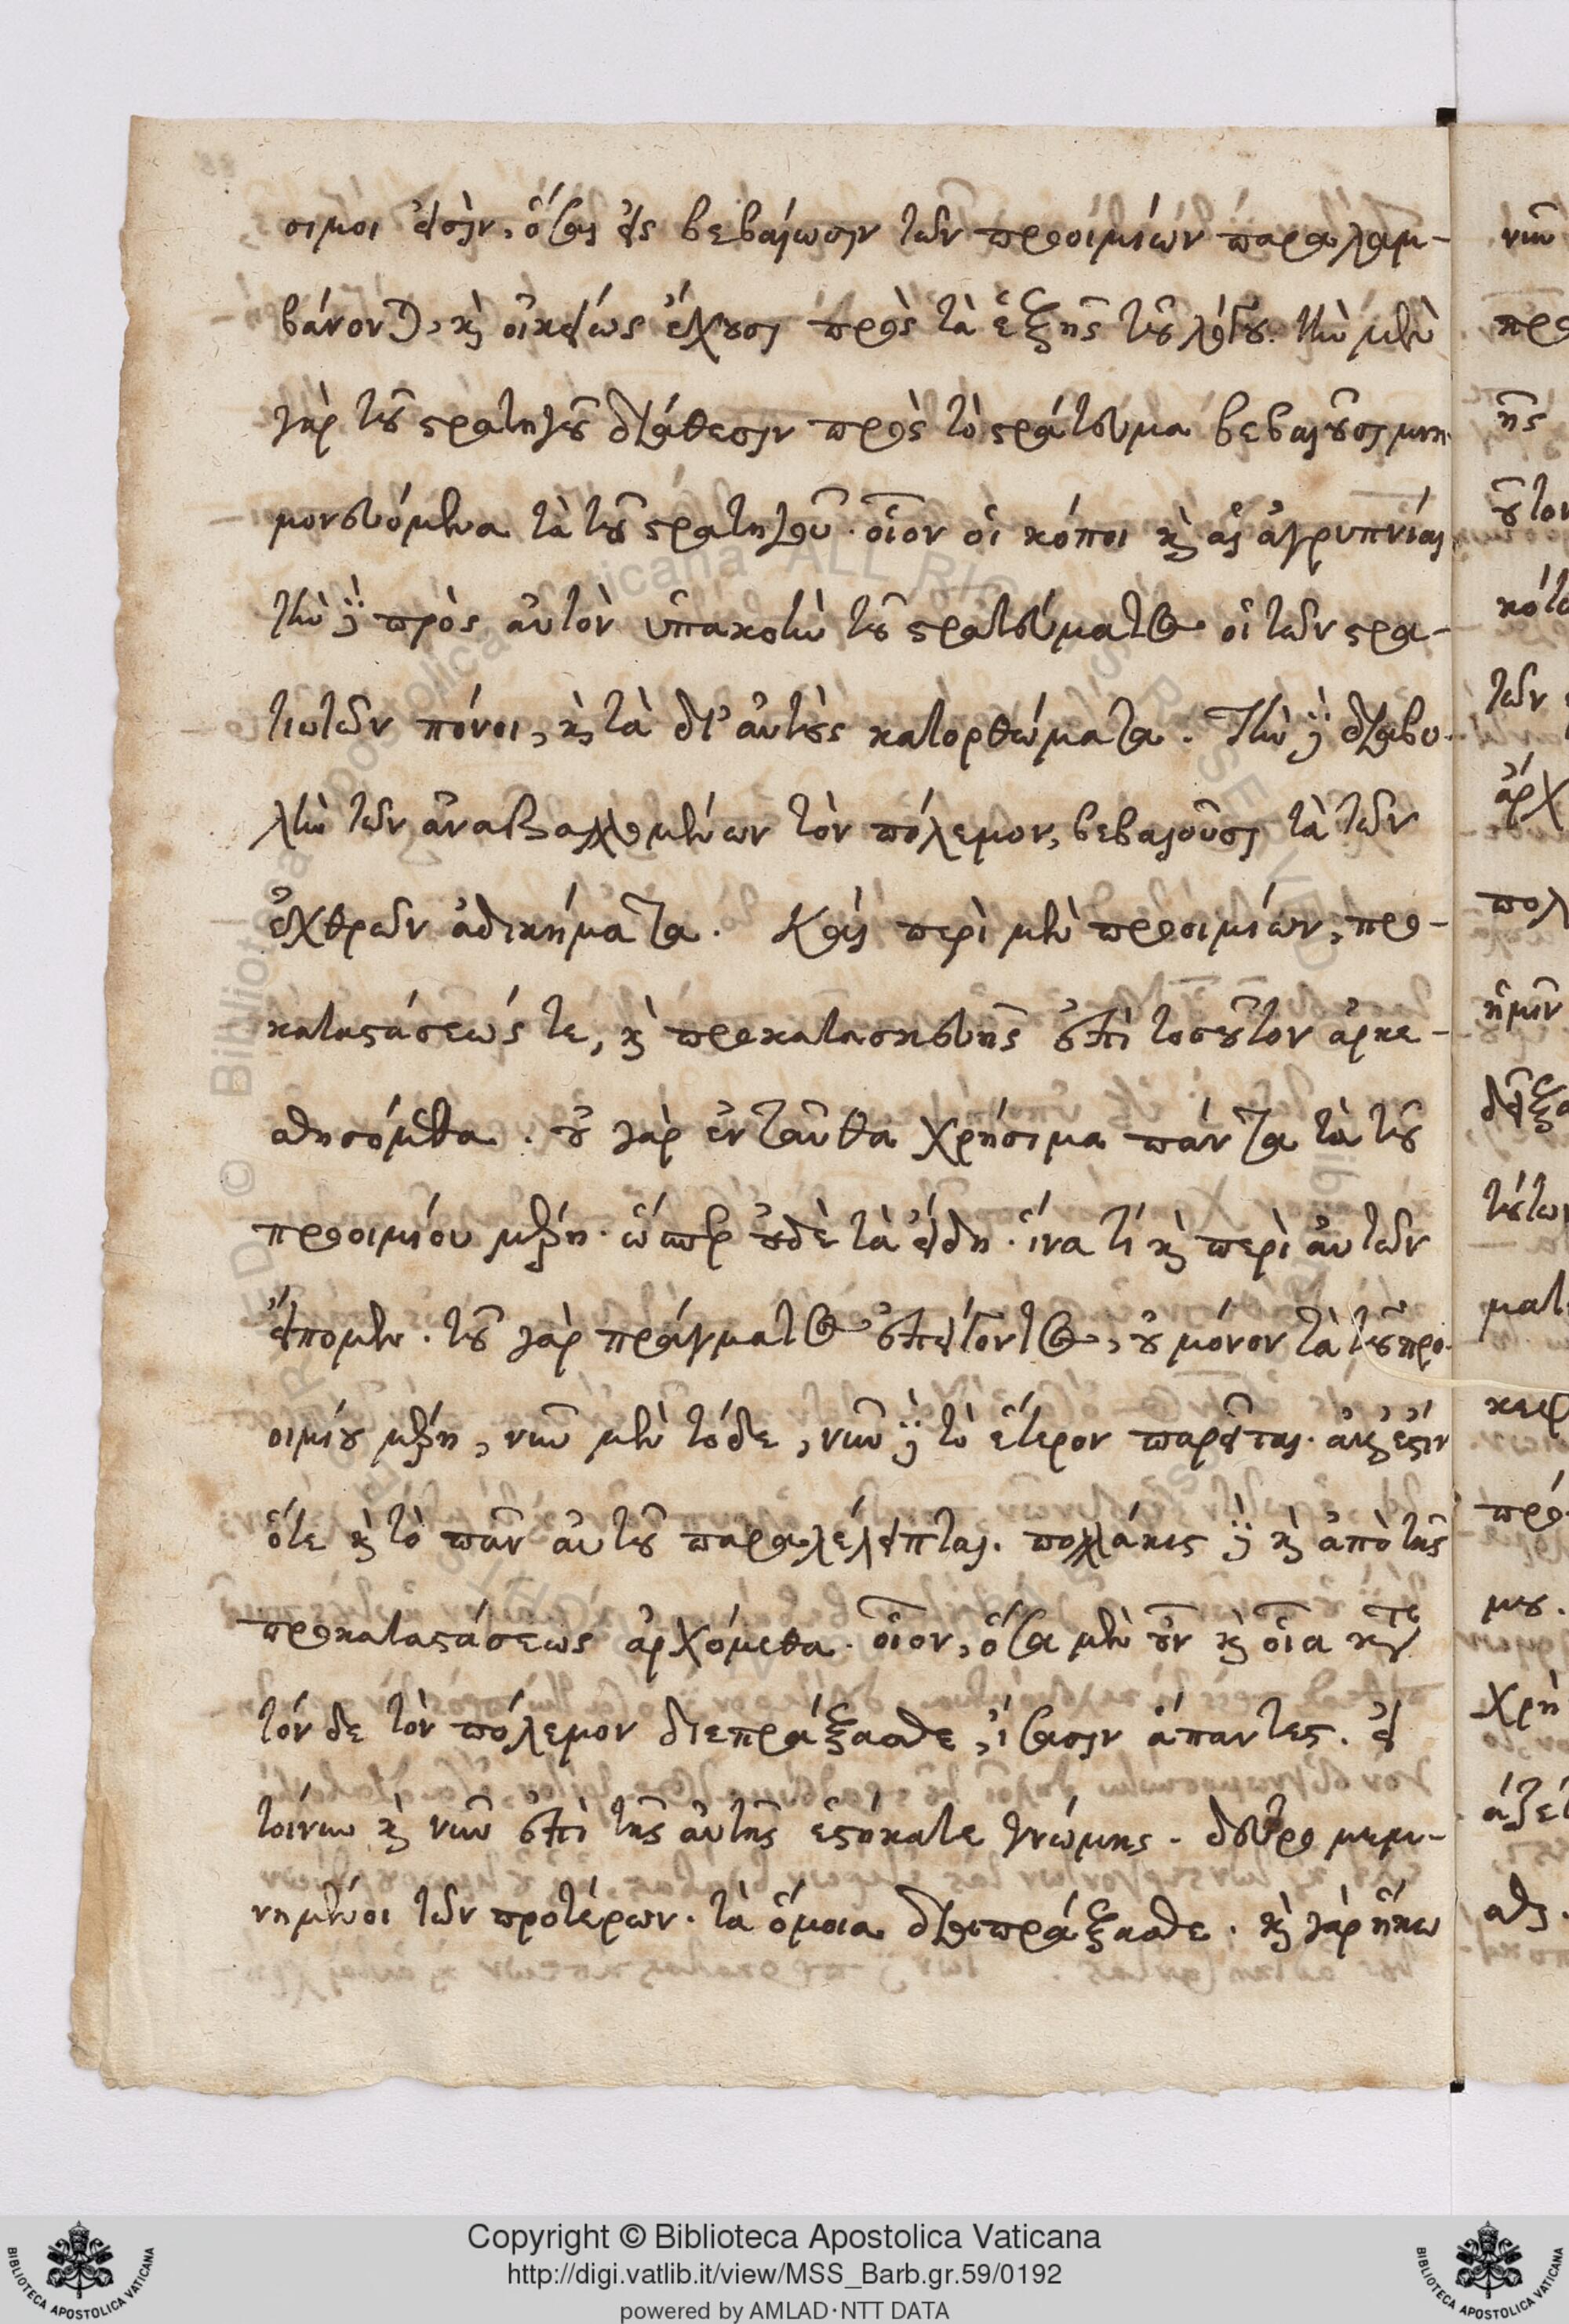 σιμοι εἰσὶν, ὅσαι εἰς βεβαίωσιν τῶν προοιμίων παραλαμ-
βάνονται, καὶ οἰκείως ἔχουσι πρὸς τὰ ἑξῆς τοῦ λόγου. τὴν μὲν
γὰρ τοῦ στρατηγοῦ διάθεσιν πρὸς τὸ στράτευμα βεβαιοῦσι μνη-
μονευόμενα τὰ τοῦ στρατηγοῦ. οἷον οἱ κόποι καὶ αἱ ἀγρυπνίαι
τὴν δὲ πρὸς αὐτὸν ὑπακοὴν τοῦ στρατεύματος οἱ τῶν στρα-
τιωτῶν πόνοι, καὶ τὰ δι' αὐτοὺς κατορθώματα. Τὴν δὲ διαβο-
λὴν τῶν ἀναβαλλομένων τὸν πόλεμον, βεβαιοῦσι τὰ τῶν
ἐχθρῶν ἀδικήματα. Καὶ περὶ μὲν προοιμίων, προ-
καταστάσεώς τε, καὶ προκατασκευῆς ἐπὶ τοσοῦτον ἀρκε-
σθησόμεθα. οὐ γὰρ ἐνταῦθα χρήσιμα πάντα τὰ τοῦ
προοιμίου μέρη. ὥσπερ οὐδὲ τὰ εἴδη. ἵνα τι καὶ περὶ αὐτῶν
εἴπομεν. τοῦ γὰρ πράγματος ἐπείγοντος, οὐ μόνον τὰ τοῦ προ-
οιμίου μέρη, νῦν μὲν τόδε, νῦν δὲ τὸ ἕτερον παρεῖται. ἀλλ' ἔστιν
ὅτε καὶ τὸ πᾶν αὐτοῦ παραλέλειπται. πολλάκις δὲ καὶ ἀπὸ τῆς
προκαταστάσεως ἀρχόμεθα. οἷον, ὅσα μὲν οὖν καὶ οἷα κατὰ
τόνδε τὸν πόλεμον διεπράξασθε, ἴσασιν ἅπαντες. εἰ
τοίνυν καὶ νῦν ἐπὶ τῆς αὐτῆς ἑστήκατε γνώμης. δεῦρο μεμι-
νημένοι τῶν προτέρων. τὰ ὅμοια διαπράξασθε. καὶ γὰρ ἥκω
Copyright © Biblioteca Apostolica Vaticana
http://digi.vatlib.it/view/MSS_Barb.gr.59/0192
powered by AMLAD·NTT DATA